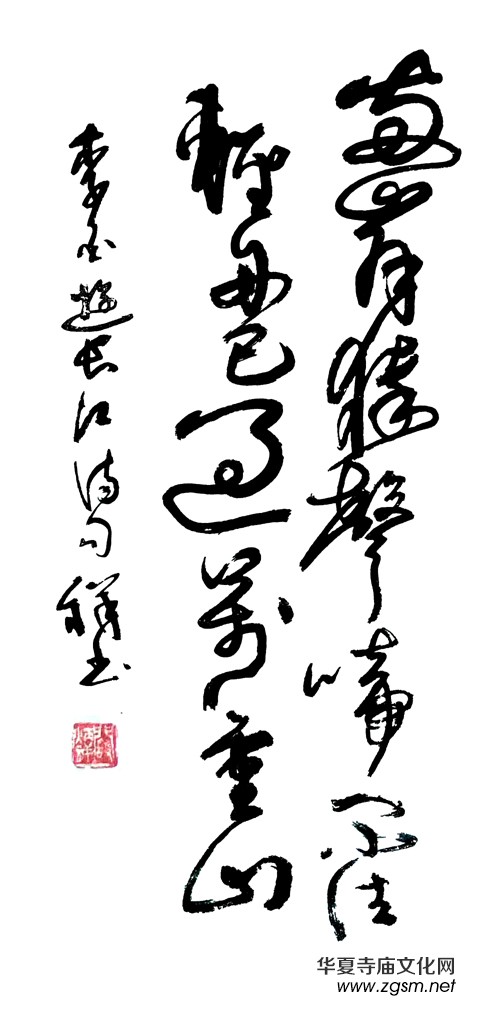 兩岸猿聲啼不住
輕舟已過萬重山
李白遊长江诗句 祥书
华夏寺庙文化网
www.zgsm.net